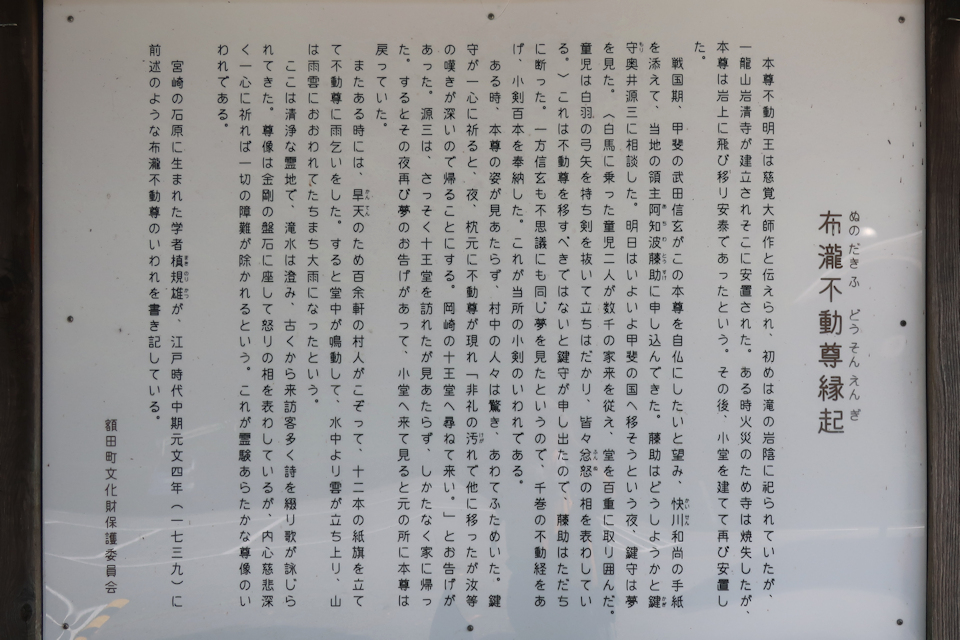 布瀧不動尊縁起
ぬのだきふ どうそんえんぎ
本尊不動明王は慈覚大師作と伝えられ、初めは滝の岩陰に祀られていたが、
一龍山岩清寺が建立されそこに安置された。ある時火災のため寺は焼失したが、
本尊は岩上に飛び移り安泰であったという。その後、小堂を建てて再び安置し
た。
戦国期、甲斐の武田信玄がこの本尊を自仏にしたいと望み、快川和尚の手紙
を添えて、当地の領主阿知波藤助に申し込んできた。藤助はどうしようかと鍵
守奥井源三に相談した。明日はいよいよ甲斐の国へ移そうという夜、鍵守は夢
を見た。〈白馬に乗った童児二人が数千の家来を従え、堂を百重に取り囲んだ。
童児は白羽の弓矢を持ち剣を抜いて立ちはだかり、皆々忿怒の相を表わしてい
る。〉これは不動尊を移すべきではないと鍵守が申し出たので、藤助はただち
に断った。一方信玄も不思議にも同じ夢を見たというので、千巻の不動経をあ
げ、小剣百本を奉納した。これが当所の小剣のいわれである。
ある時、本尊の姿が見あたらず、村中の人々は驚き、あわてふためいた。鍵
守が一心に祈ると、夜、枕元に不動尊が現れ「非礼の汚れで他に移ったが汝等
の嘆きが深いので帰ることにする。岡崎の十王堂へ尋ねて来い。」とお告げが
あった。源三は、さっそく十王堂を訪れたが見あたらず、しかたなく家に帰っ
た。するとその夜再び夢のお告げがあって、小堂へ来て見ると元の所に本尊は
戻っていた。
またある時には、旱天のため百余軒の村人がこぞって、十二本の紙旗を立て
て不動尊に雨乞いをした。すると堂中が鳴動して、水中より雲が立ち上り、山
は雨雲におおわれてたちまち大雨になったという。
ここは清浄な霊地で、滝水は澄み、古くから来訪客多く詩を綴り歌が詠じら
れてきた。尊像は金剛の盤石に座して怒りの相を表わしているが、内心慈悲深
く一心に祈れば一切の障難が除かれるという。これが霊験あらたかな尊像のい
われである。
宮崎の石原に生まれた学者槙規雄が、江戸時代中期元文四年（一七三九）に
前述のような布瀧不動尊のいわれを書き記している。
額田町文化財保護委員会